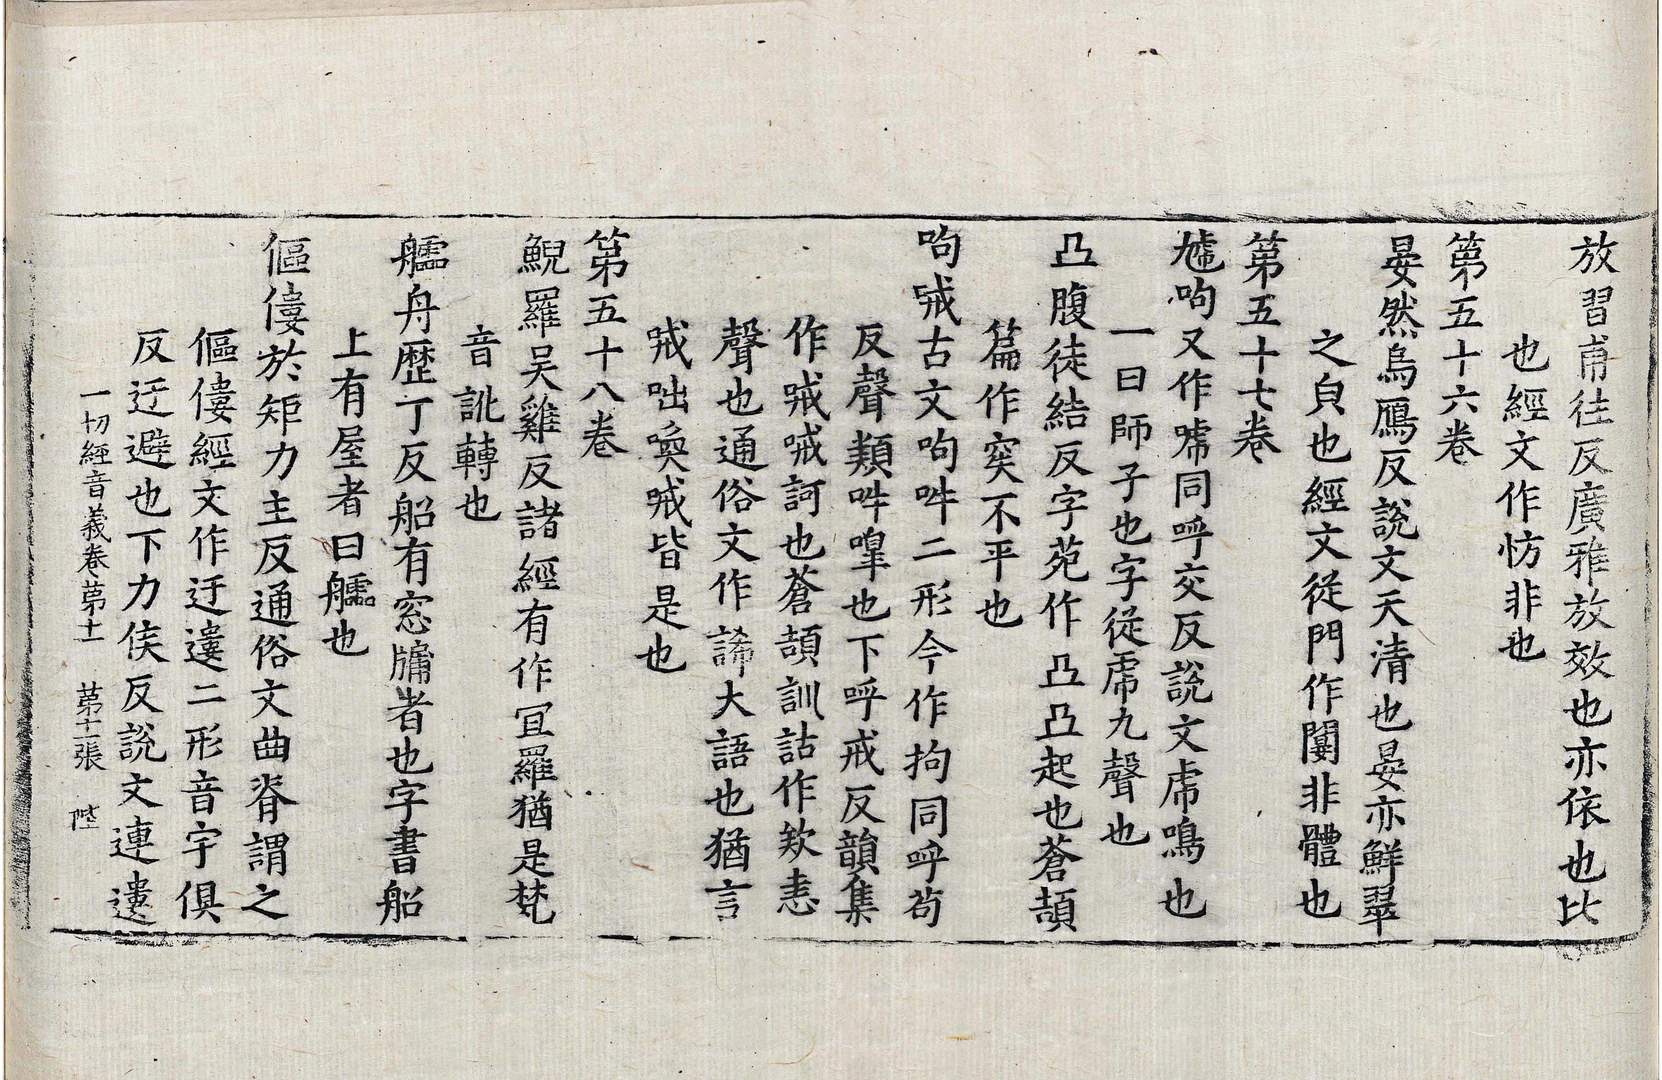 放習甫往反廣雅放效也亦依也比
也經文作㤃非也
第五十六卷
晏然烏鴈反說文天清也晏亦鮮翠
之皃也經文從門作闄非體也
第五十七卷
虓呴又作唬同呼交反說文虎鳴也
一曰師子也字從虎九聲也
凸腹徒結反字苑作凸凸起也蒼頡
篇作突不平也
呴㖑古文呴吽二形今作拘同呼苟
反聲類吽嘷也下呼戒反韻集
作㖑㖑訶也蒼頡訓詁作欸恚
聲也通俗文作諦大語也猶言
㖑咄喚㖑皆是也
第五十八卷
鯢羅吴雞反諸經有作冝羅猶是梵
音訛轉也
艫舟歷丁反船有窓牖者也字書船
上有屋者曰艫也
傴僂於矩力主反通俗文曲脊謂之
傴僂經文作迂遱二形音宇俱
反迂避也下力侯反說文連遱
一切經音義卷第十一 第十二張 陛